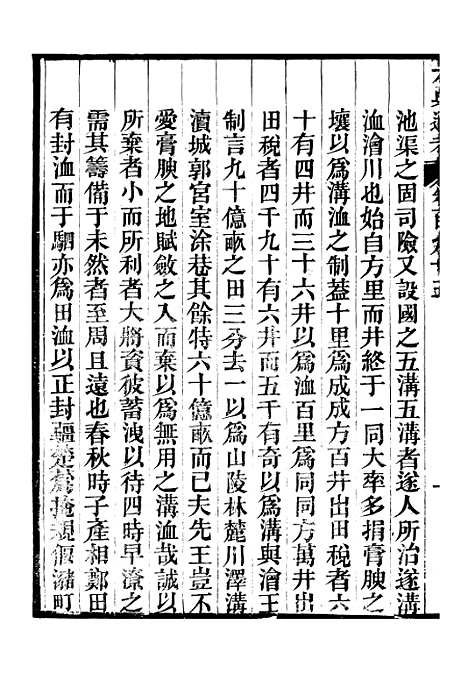 池渠之固司險又設國之五溝五溝者遂人所治遂溝
洫澮川也始自方里而井終于一同大率多捐膏腴之
壤以爲溝洫之制蓋十里爲成成方百井出田稅者六
十有四井而三十六井以爲洫百里爲同同方萬井出
田稅者四千九十有六井而五千有奇以爲溝與澮王
制言九十億畝之田三分去一以爲山陵林麓川澤溝
瀆城郭宮室涂巷其餘特六十億畝而已夫先王豈不
愛膏腴之地賦斂之入而棄以爲無用之溝洫哉誠以
所棄者小而所利者大將資彼蓄洩以待四時旱潦之
需其籌備于未然者至周且遠也春秋時子產相鄭田
有封洫而子駟亦爲田洫以正封疆楚蒍掩規偃瀦町